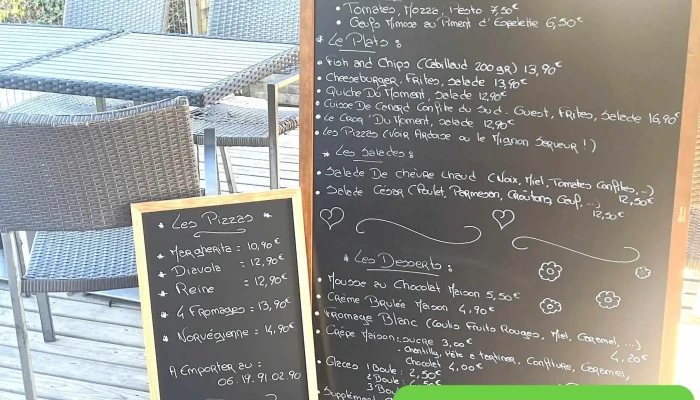 • Tomates, Mozza, Pesto 7,50€
• Oeufs Mimose au Piment d'Espelette 6,50€
* Les Plats :
• Fish and Chips (Cabillaud 200gr) 13,90€
• Cheeseburger, Frites, Salade 13,90€
• Quiche Du Moment, Salade 12,90€
• Cuisse De Canard Confite du Sud-Ouest, Frites, Salade 16,90€
• Le Croq' Du Moment, Salade 12,90€
• Les Pizzas (Voir Ardoise ou le Mignon Serveur !)
* Les Salades :
• Salade De Chèvre Chaud (Noix, Miel, Tomates Confites, ..) 12,50€
• Salade César (Poulet, Parmesan, Croûtons, Oeuf, ...) 12,50€
* Les Desserts :
• Mousse au Chocolat Maison 5,50€
• Crème Brulée Maison 4,90€
• Fromage Blanc (Coulis Fruits Rouges, Miel, Caramel, ...) 4,20€
• Crêpe Maison : Sucre 3,00€
- Chantilly, Pâte à Tartiner, Confiture, Caramel,
Chocolat 4,00€
• Glaces 1 Boule : 2,50€
2 Boule :
3 Boule
• Supplément
* Les Pizzas *
* Margherita = 10,90€
* Diavola = 12,90€
* Reine = 12,90€
* 4 Fromages = 13,90€
* Norvégienne = 14,90€
A Emporter au :
06.19.91.02.90